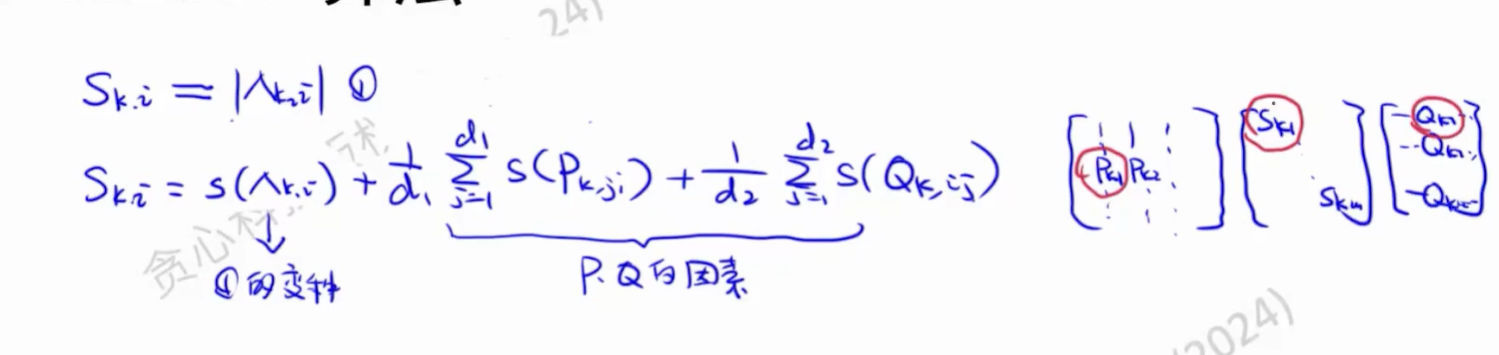 24)
S_{k,i} = |Λ_{k,i}| ①
S_{k,i} = s(Λ_{k,i}) + \frac{1}{d_1} \sum_{j=1}^{d_1} s(P_{k,ji}) + \frac{1}{d_2} \sum_{j=1}^{d_2} s(Q_{k,ij})
①的变种
P、Q的因素
P_{k1} P_{k2}
S_{k1}
S_{km}
Q_{k1}
贪心科
2024)